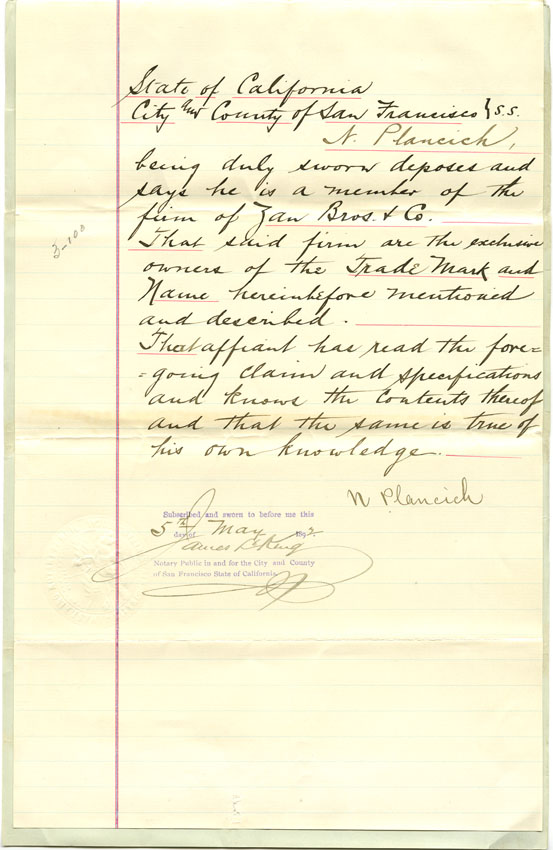 State of California
City and County of San Francisco } s.s.
N. Plancich,
being duly sworn deposes and
says he is a member of the
firm of Zan Bros. & Co.
That said firm are the exclusive
owners of the Trade Mark and
Name hereinbefore mentioned
and described.
That affiant has read the fore=
=going claim and specifications
and knows the contents thereof
and that the same is true of
his own knowledge.
N Plancich
Subscribed and sworn to before me this
5th day of May 189
James L. King
Notary Public in and for the City and County
of San Francisco State of California.
3-100